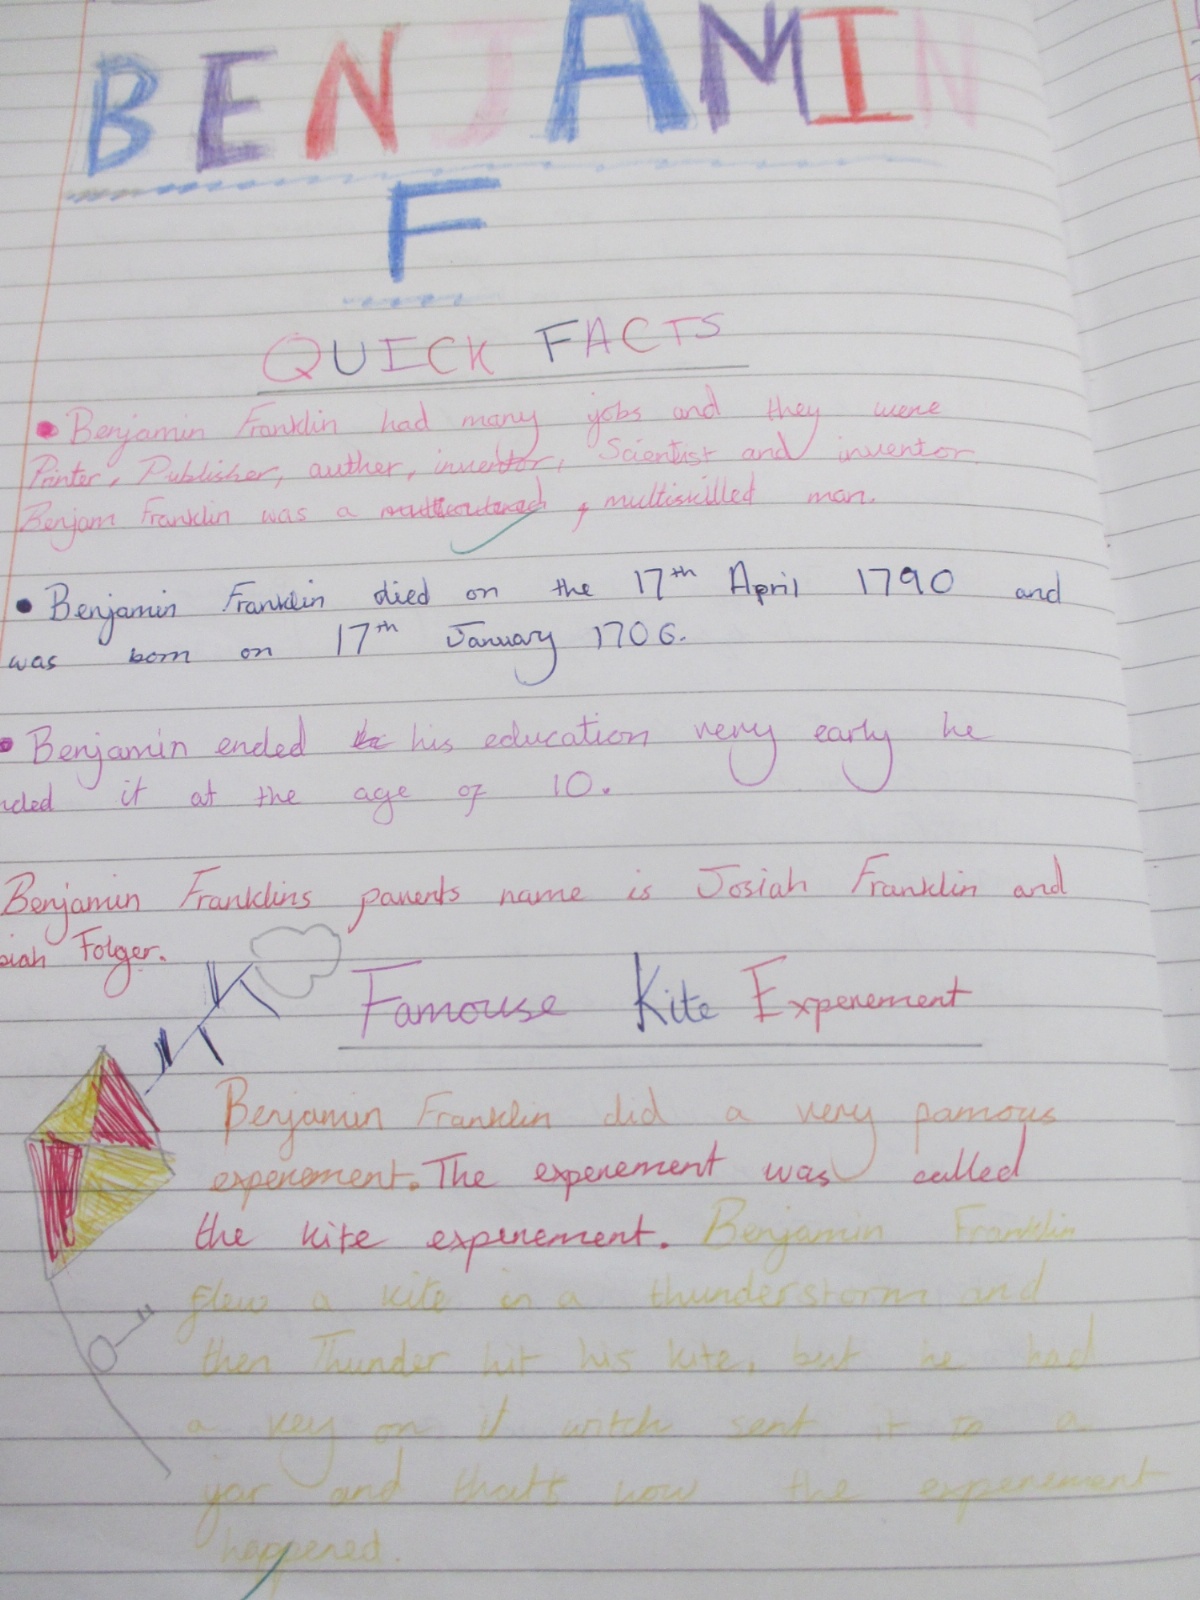 BENJAMIN
F
QUICK FACTS
• Benjamin Franklin had many jobs and they were
Printer, Publisher, auther, inventor, Scientist and inventor
Benjam Franklin was a multiskilled man.
• Benjamin Franklin died on the 17th April 1790 and
was born on 17th January 1706.
• Benjamin ended his education very early he
nded it at the age of 10.
Benjamin Franklins parents name is Josiah Franklin and
siah Folger.
Famouse Kite Experement
Benjamin Franklin did a very famous
experement. The experement was called
the kite experement. Benjamin Franklin
flew a kite in a thunderstorm and
then Thunder hit his kite, but he had
a key on it witch sent it to a
jar and that's how the experement
happened.